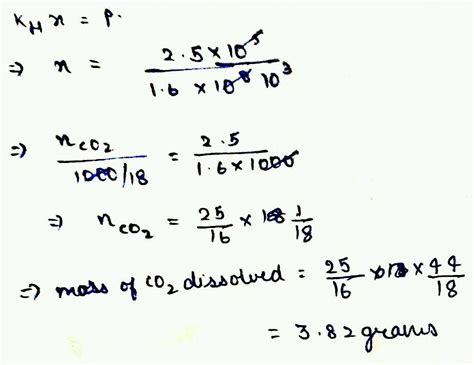 K_H x = P.
⇒ x = (2.5 × 10^5) / (1.6 × 10^8 10^3)
⇒ n_CO2 / (1000/18) = 2.5 / (1.6 × 1000)
⇒ n_CO2 = 25/16 × 1/18
⇒ mass of CO2 dissolved = 25/16 × 44/18
= 3.82 grams